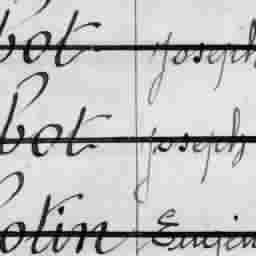 bot Joseph
bot Joseph
otin Eugèn